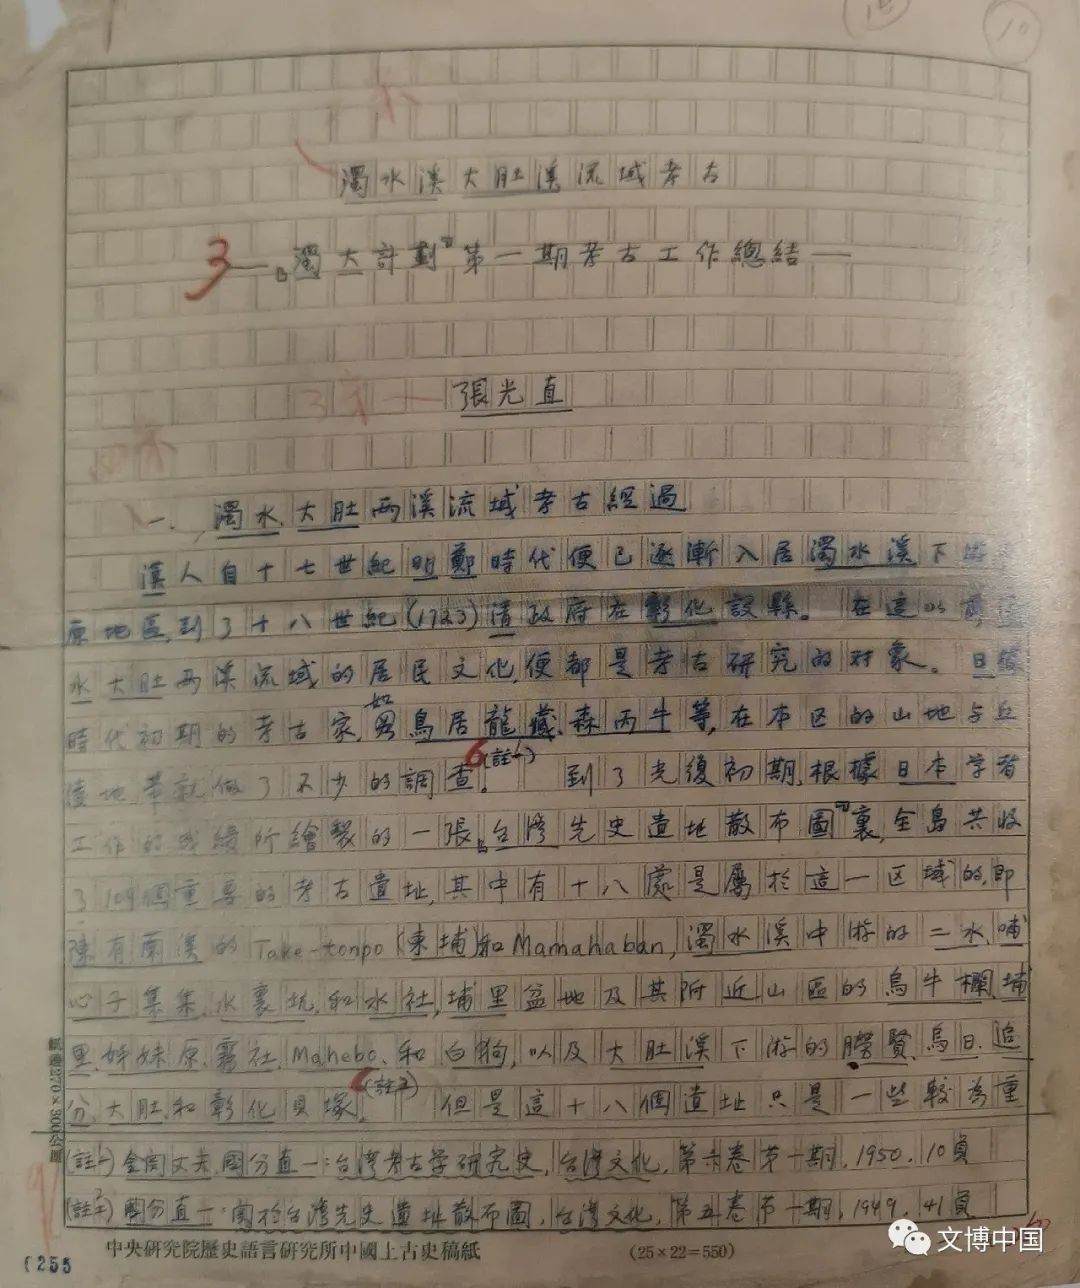 10
濁水溪大肚溪流域考古
3
—『濁大計劃』第一期考古工作總結—
張光直
一、濁水、大肚兩溪流域考古經過
漢人自十七世紀明鄭時代便已逐漸入居濁水溪下游
原地區，到了十八世紀(1723)清政府在彰化設縣。在這以前
水大肚兩溪流域的居民文化，便都是考古研究的对象。日據
時代初期的考古家，如鳥居龍藏、森丙牛等，在本区的山地与丘
陵地帶就做了不少的調查。(註一) 到了光復初期，根據日本学者
6
工作的成績所繪製的一張『台灣先史遺址散布圖』裏，全島共收
了109個重要的考古遺址，其中有十八處是屬於這一区域的，即
陳有蘭溪的Take-tonpo(東埔)和Mamahaban，濁水溪中游的二水、哺
心子、集集、水裏坑、和水社，埔里盆地及其附近山區的烏牛欄、埔
里、姊妹原、霧社、Mahebo、和白狗，以及大肚溪下游的勝賢、烏日、追
分、大肚、和彰化貝塚。(註二) 但是這十八個遺址只是一些較為重
(註一)金関丈夫、國分直一：台灣考古学研究史，台灣文化，第六卷第一期，1950，10頁
(註二)國分直一：関於台灣先史遺址散布圖，台灣文化，第五卷第一期，1949，41頁
紙邊270×300公厘
中央研究院歷史語言研究所中國上古史稿紙
(25×22=550)
(255
文博中国